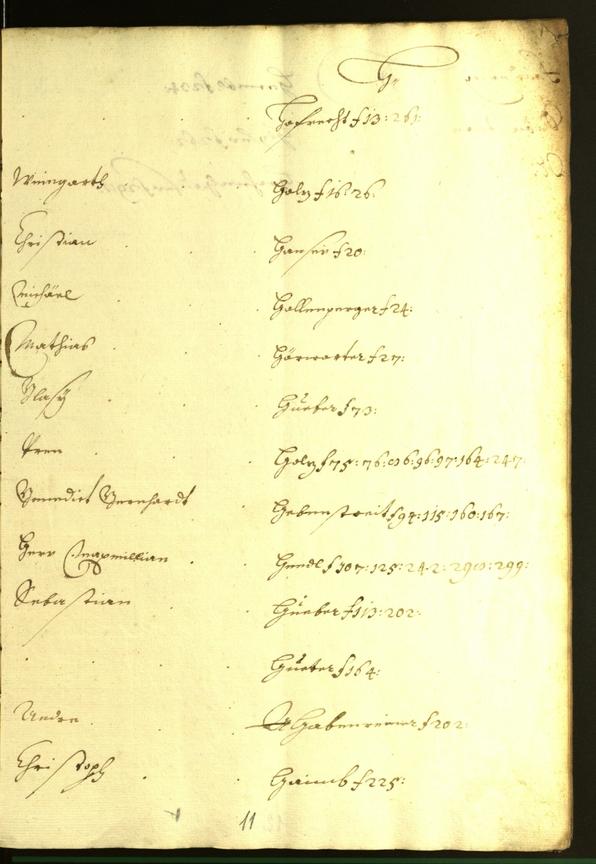 G.
Hofrecht f 13: 261:
Weingarth Holz f 16: 26.
Christian Hanser f 20:
Michael Hollenperger f 24:
Mathias Hörwarter f 27:
Blasÿ Hueber f 73:
Pren Holz f 75: 76: 96: 97: 164: 247
Benedict Bernhardt Hebenstreit f 94: 115: 160: 167:
Herr Maxmillian Hendl f 107: 125: 242: 290: 299:
Sebastian Hueber f 113: 202:
Hueter f 164:
Andre Habenreiner f 202:
Christoph Haimb f 225:
11